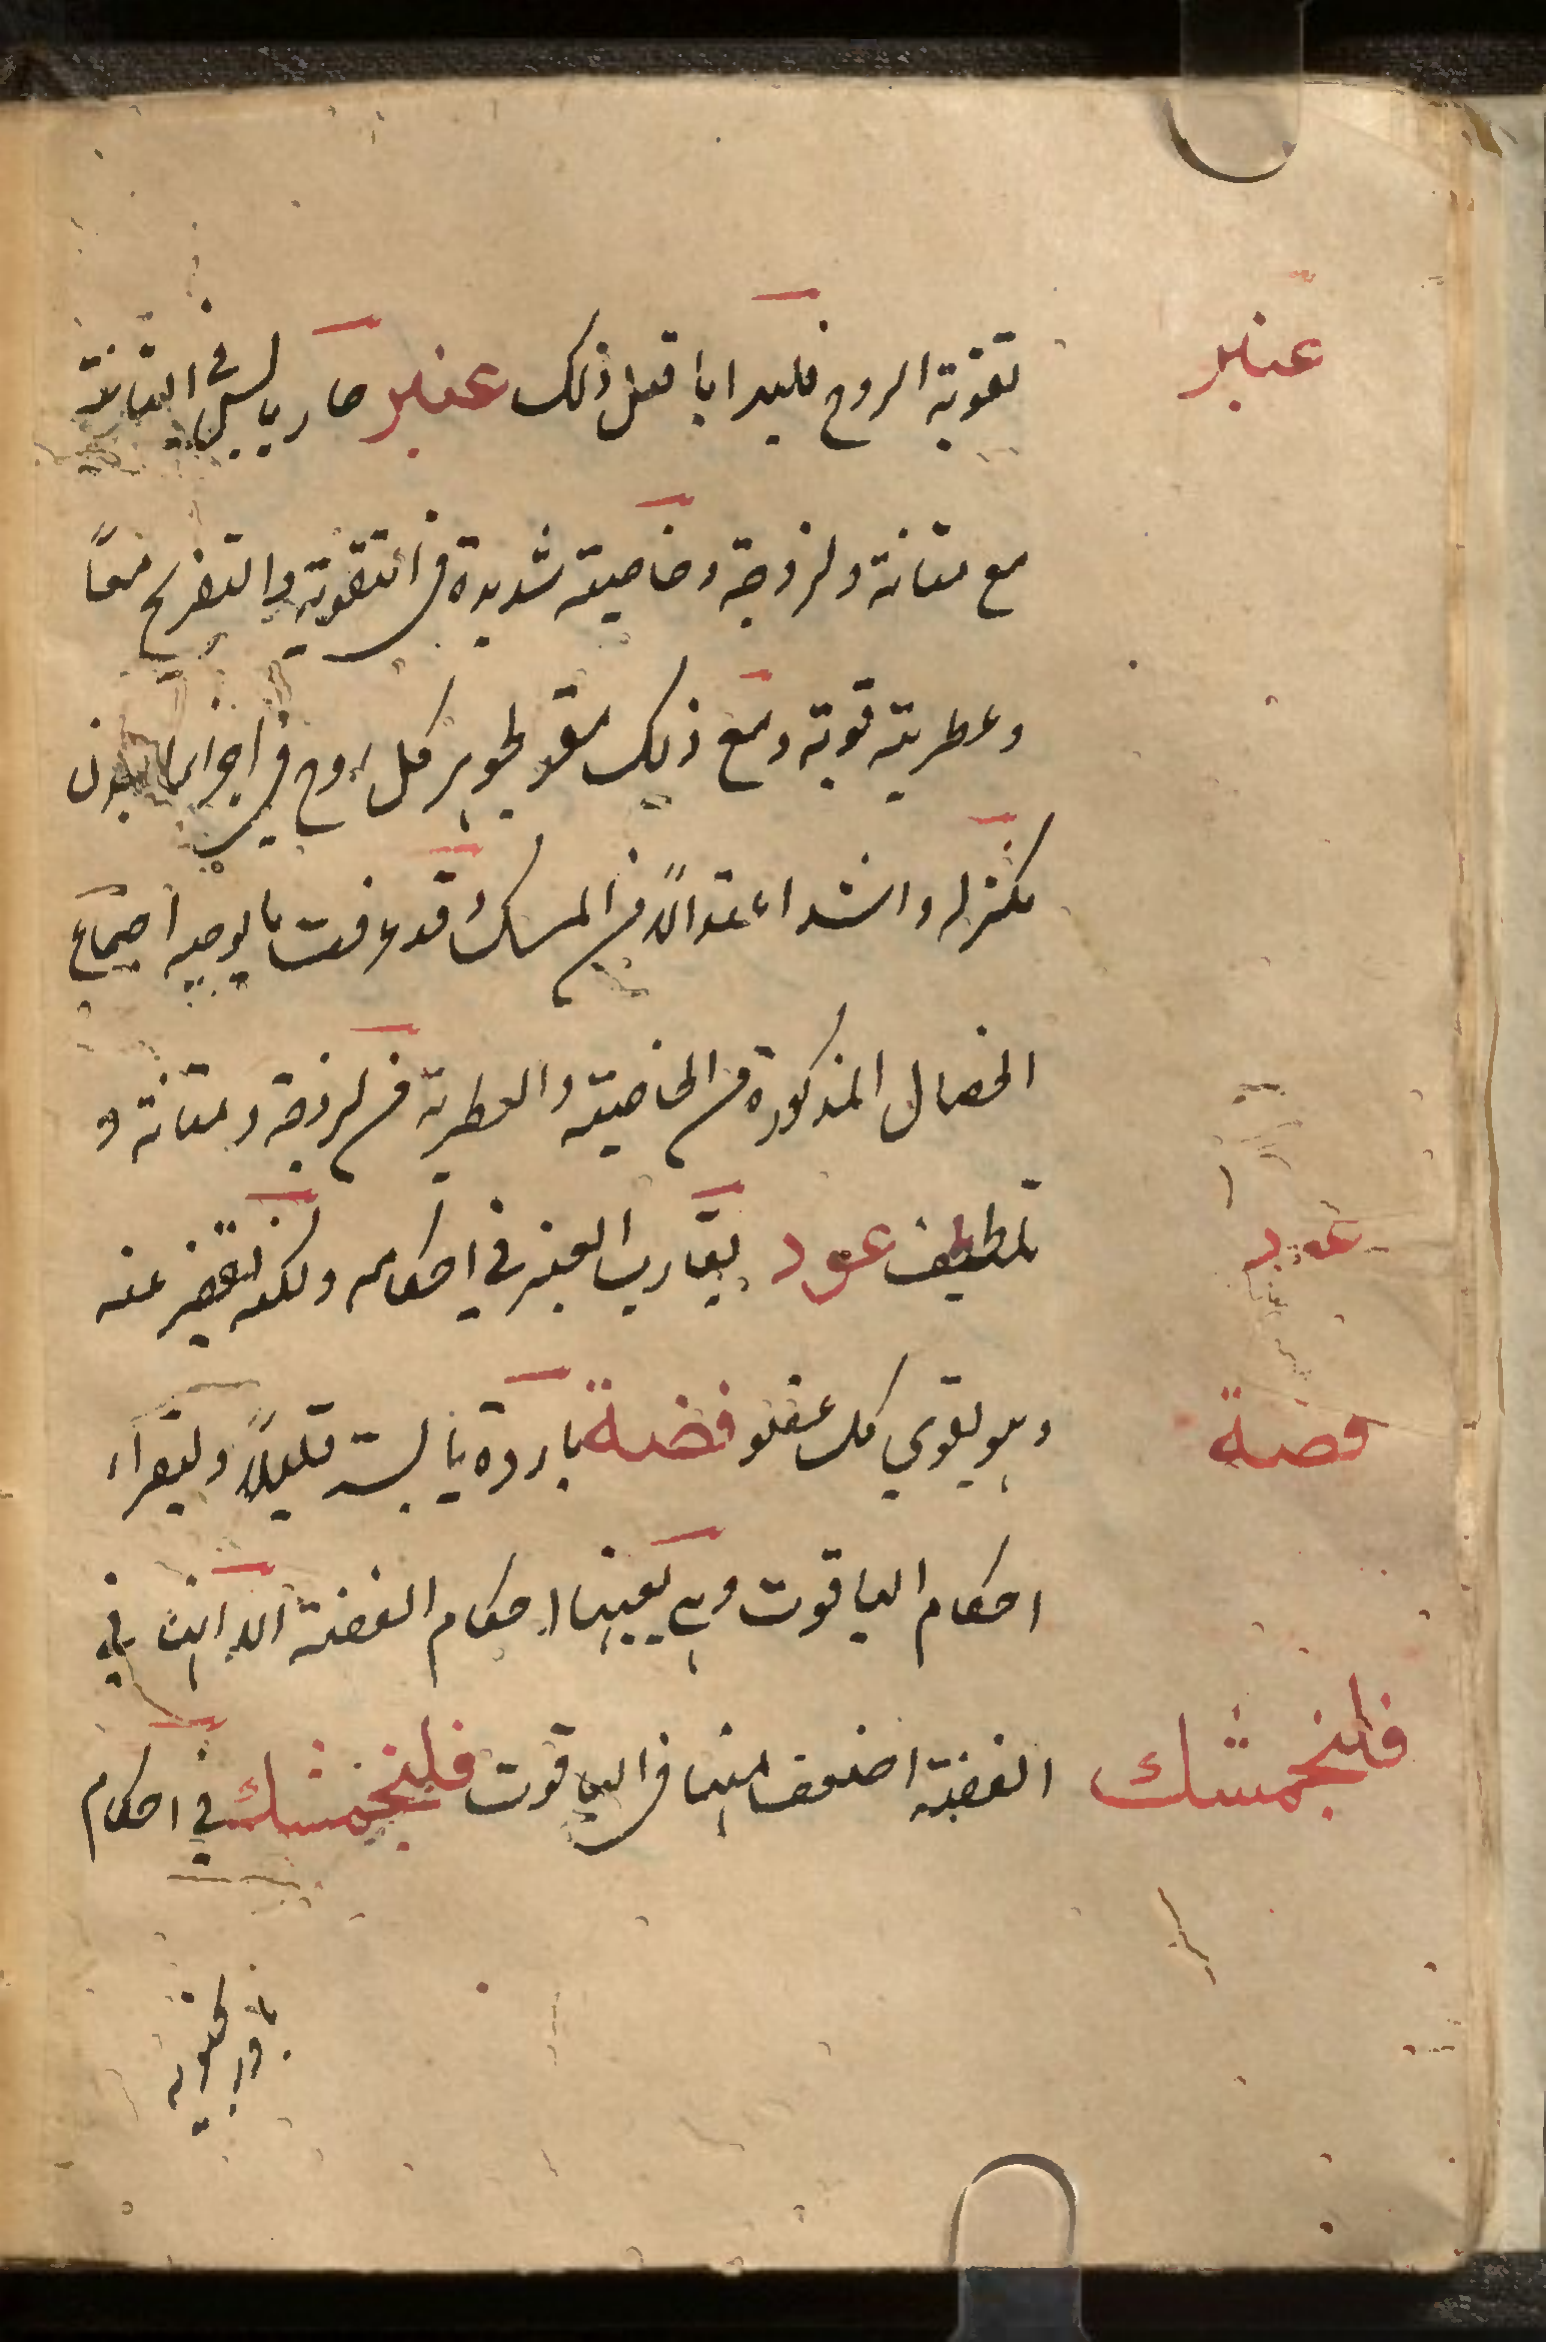 عنبر
تقوية الروح فليدايا قبل ذلك عنبر حار يابس في الثانية
مع متانة ولزوجة وخاصية شديدة في التقوية والتفريح معًا
وعطرية قوية ومع ذلك مقو لجوهر كل روح في اجزاء البدن
مكثر له واشد اعتدالًا من المسك وقد عرفت ما يوجبه اجتماع
الخصال المذكورة من الخاصية والعطرية من لزوجة ومتانة و
تلطيف عود يقارب العنبر في احكامه ولكنه عنه
عود
وهو يقوي كل عضو فضة باردة يابسة قليلًا وليقرأ
فضة
احكام الياقوت وهي بعينها احكام الفضة الا انها في
الفضة اضعف منها في الياقوت فلنجمشك في احكام
فلنجمشك
بادرنجبويه